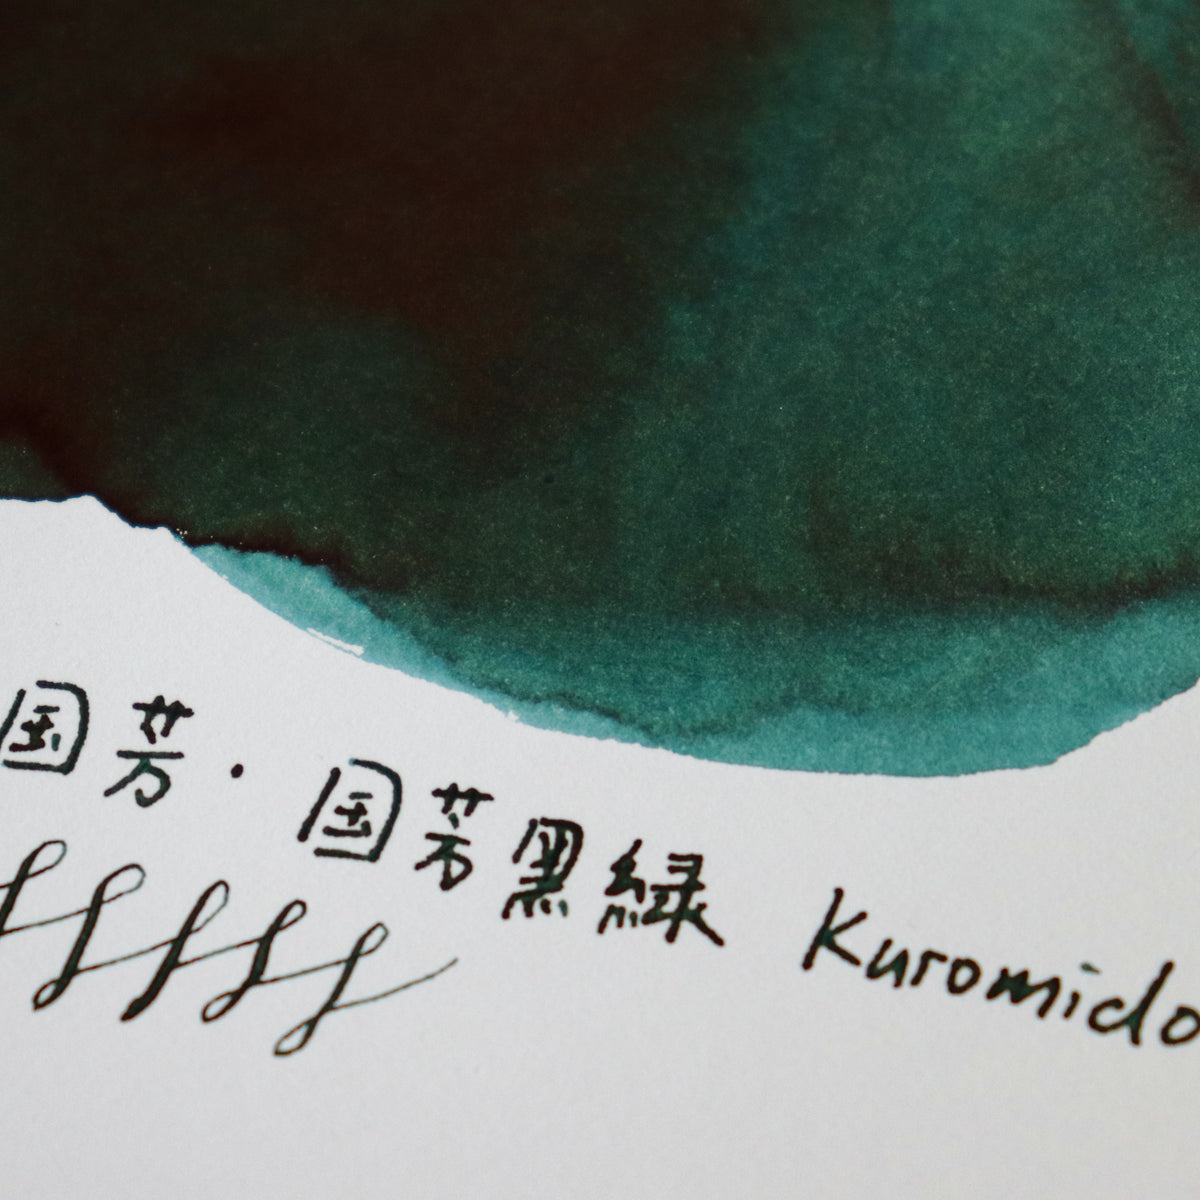 国芳・国芳黒緑 Kuromido